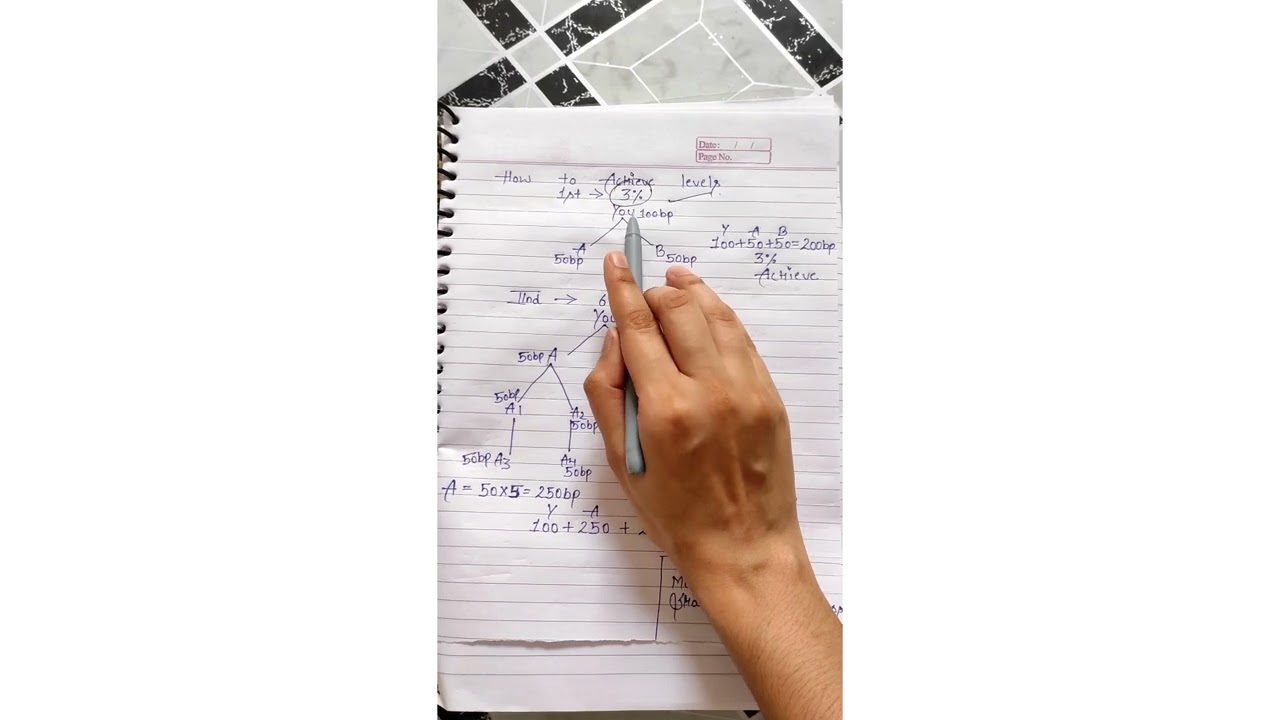 Date: / /
Page No.
How to Achieve levels
1st → 3%
You 100bp
A 50bp
B 50bp
Y A B
100+50+50=200bp
3%
Achieve
IInd → 6
You
50bp A
50bp A1
A2 50bp
50bp A3
A4 50bp
A = 50×5=250bp
Y A
100+250 +